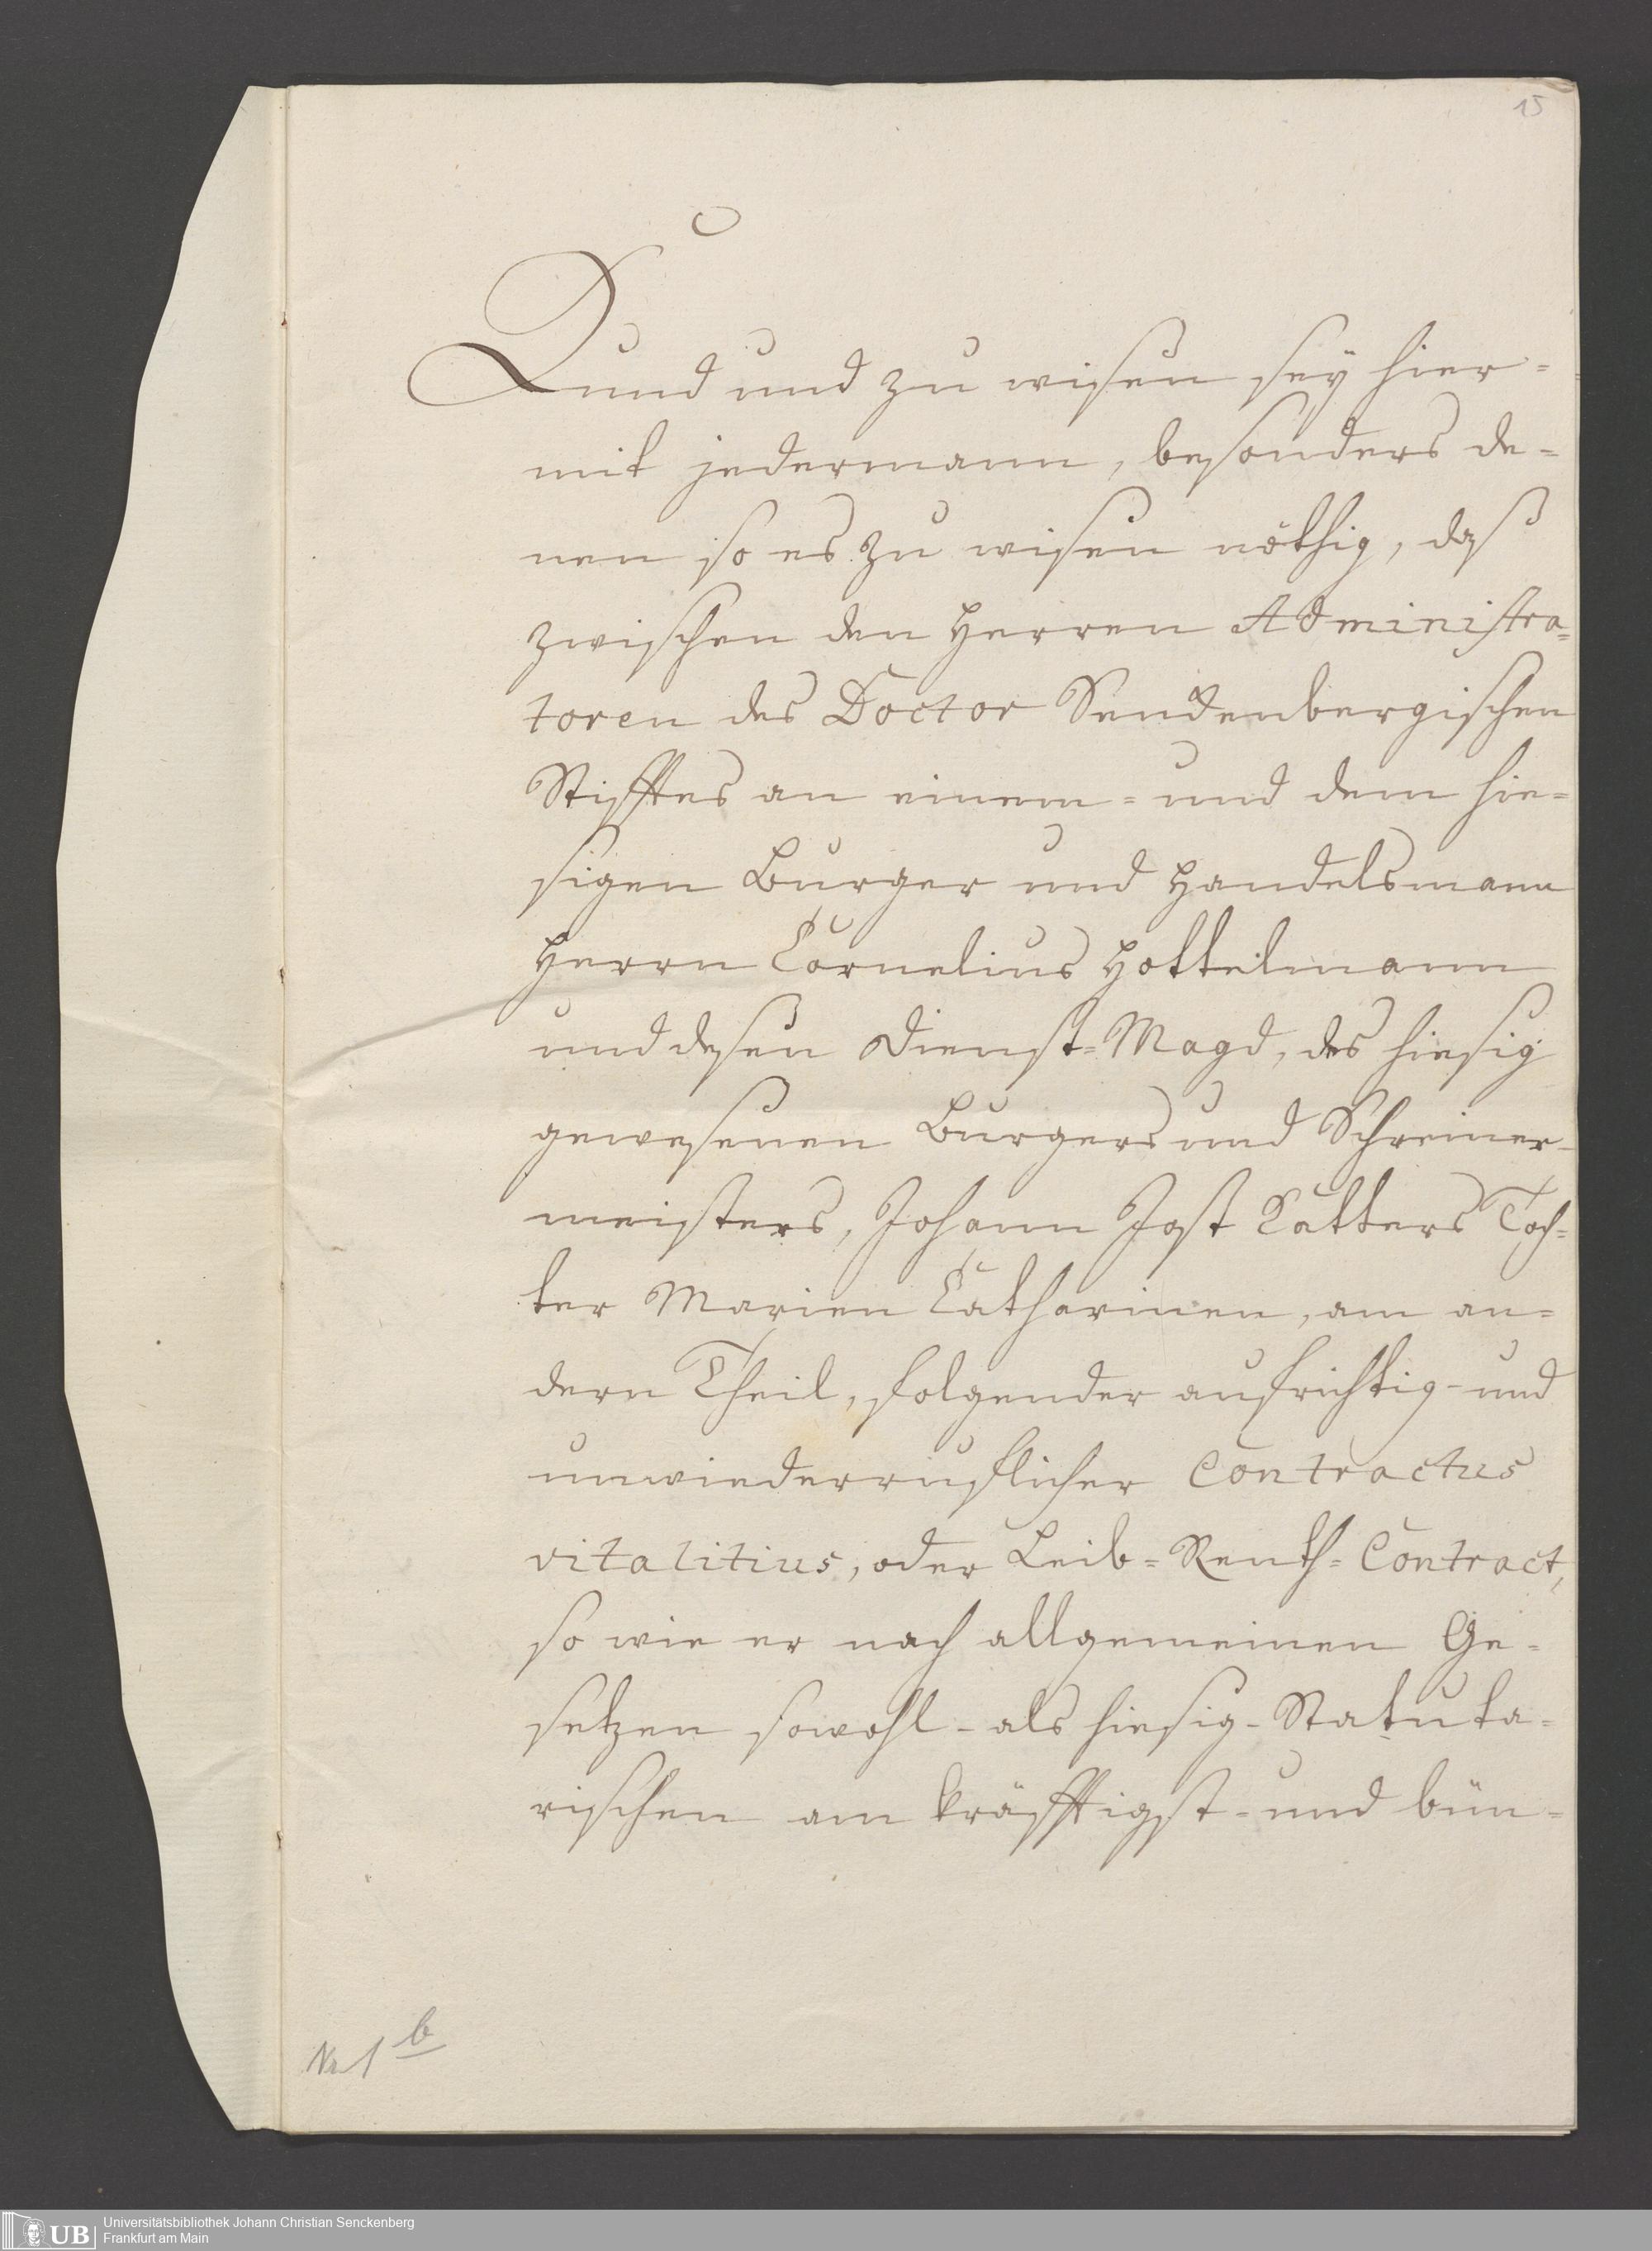 15
Kund und zu wißen seÿ hier=
mit jedermann, besonders de=
nen so es zu wißen nöthig, daß
zwischen den Herren Administra=
toren des Doctor Senckenbergischen
Stifftes an einem= und dem hie=
sigen Burger und Handelsmann
Herrn Cornelius Hottelmann
und deßen Dienst=Magd, des hiesig
gewesenen Burgers und Schreiner=
meisters, Johann Jost Katters Toch=
ter Marien Catharinen, am an=
dern Theil, folgender aufrichtig- und
unwiederruflicher Contractus
vitalitius, oder Leib=Renth=Contract,
so wie er nach allgemeinen Ge=
setzen sowohl- als hiesig-Statuta=
rischen am kräfftigst- und bün=
Nr 1 b
UB Universitätsbibliothek Johann Christian Senckenberg
Frankfurt am Main